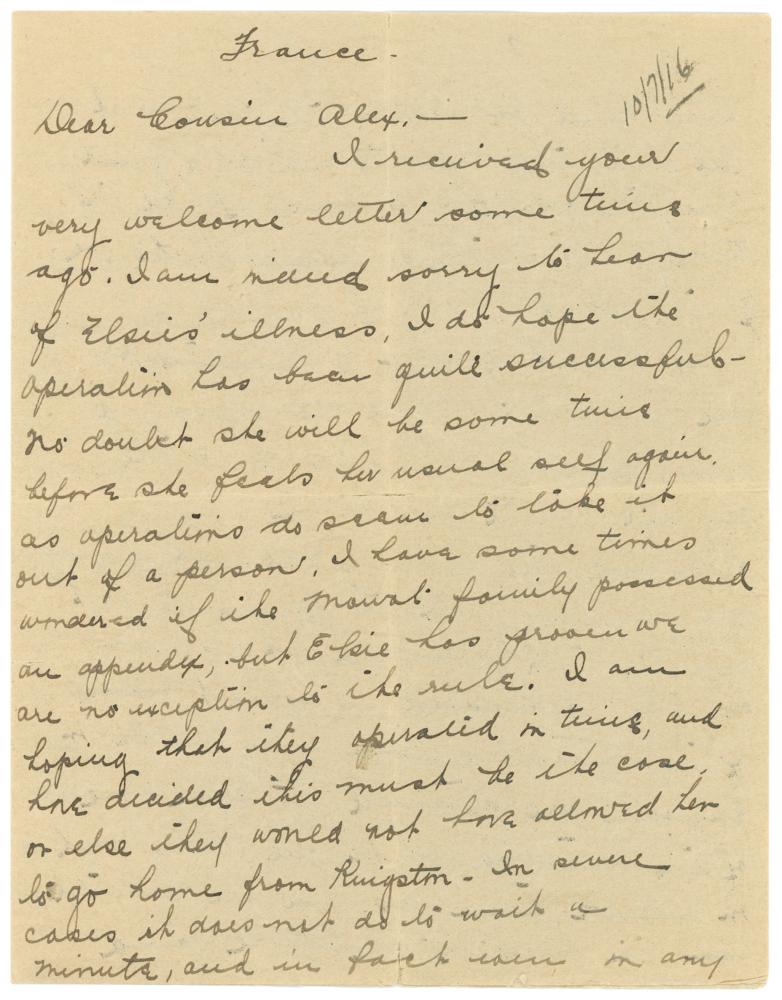 France -
10/7/16
Dear Cousin Alex, —
I received your
very welcome letter some time
ago. I am indeed sorry to hear
of Elsies' illness, I do hope the
operation has been quite successful -
no doubt she will be some time
before she feels her usual self again.
as operations do seem to take it
out of a person. I have some times
wondered if the Mowat family possessed
an appendix, but Elsie has proven we
are no exception to the rule. I am
hoping that they operated in time, and
have decided this must be the case,
or else they would not have allowed her
to go home from Kingston - In severe
cases it does not do to wait a
minute, and in fact even in any